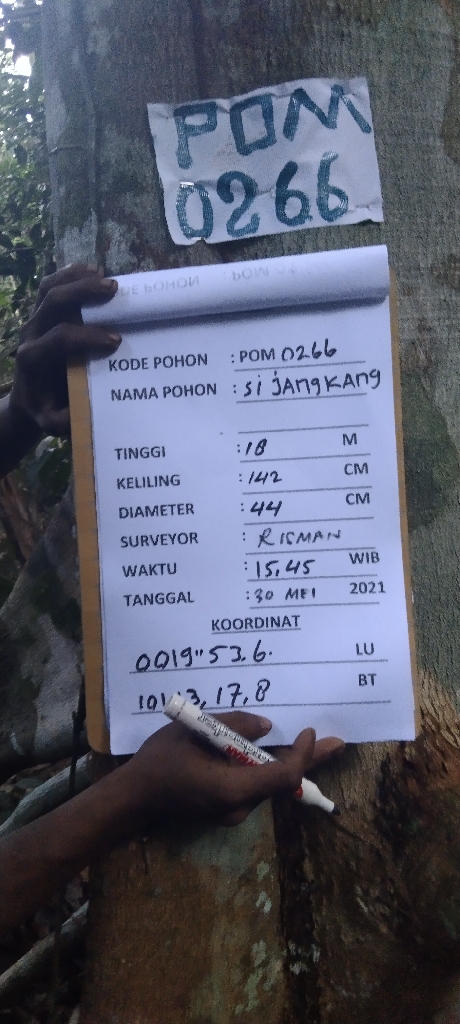 POM
0266
KODE POHON : POM 0266
NAMA POHON : si jangkang
TINGGI : 18 M
KELILING : 142 CM
DIAMETER : 44 CM
SURVEYOR : RISMAN
WAKTU : 15.45 WIB
TANGGAL : 30 MEI 2021
KOORDINAT
0019"53.6. LU
3, 17,8 BT